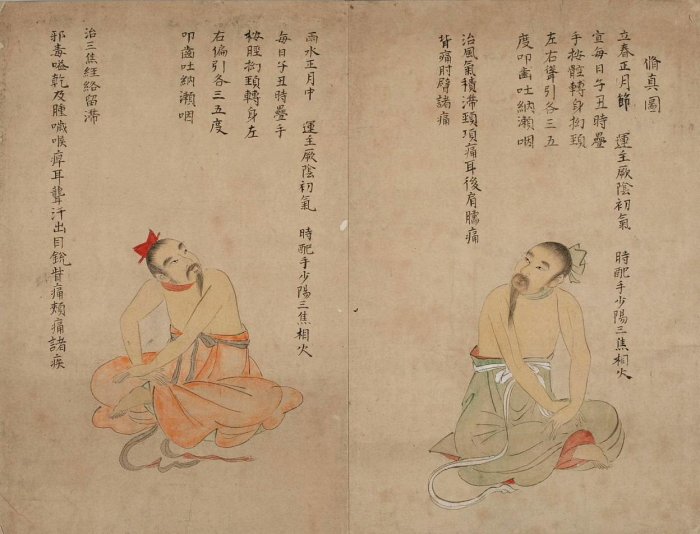 脩真圖
立春正月節 運主厥陰初氣 時配手少陽三焦相火
宜每日子丑時疊
手按髀轉身拗頸
左右聳引各三五
度叩齒吐納漱咽
治風氣積滯頸項痛耳後肩臑痛
背痛肘臂諸痛
雨水正月中 運主厥陰初氣 時配手少陽三焦相火
每日子丑時疊手
按脛拗頸轉身左
右偏引各三五度
叩齒吐納漱咽
治三焦經絡留滯
邪毒嗌乾及腫噦喉痺耳聾汗出目銳眥痛頰痛諸疾